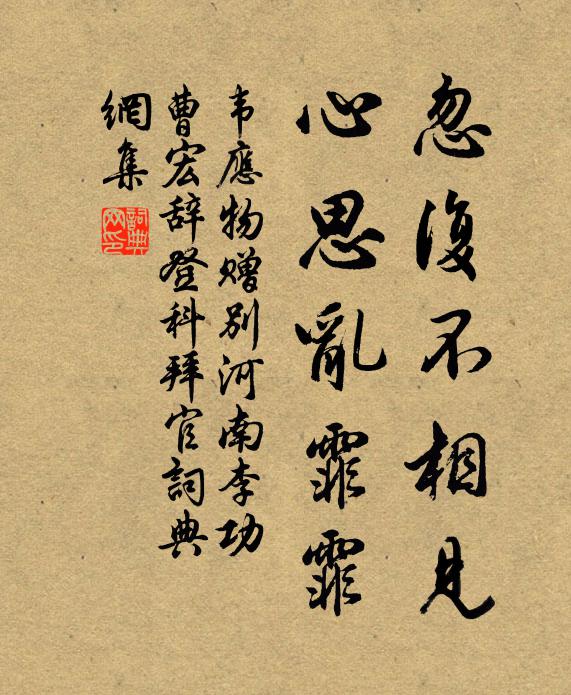 忽復不相見
心思亂霏霏
韦應物赠别河南李功
曹宏辞登科拜官詞典
網集
詞典
网印